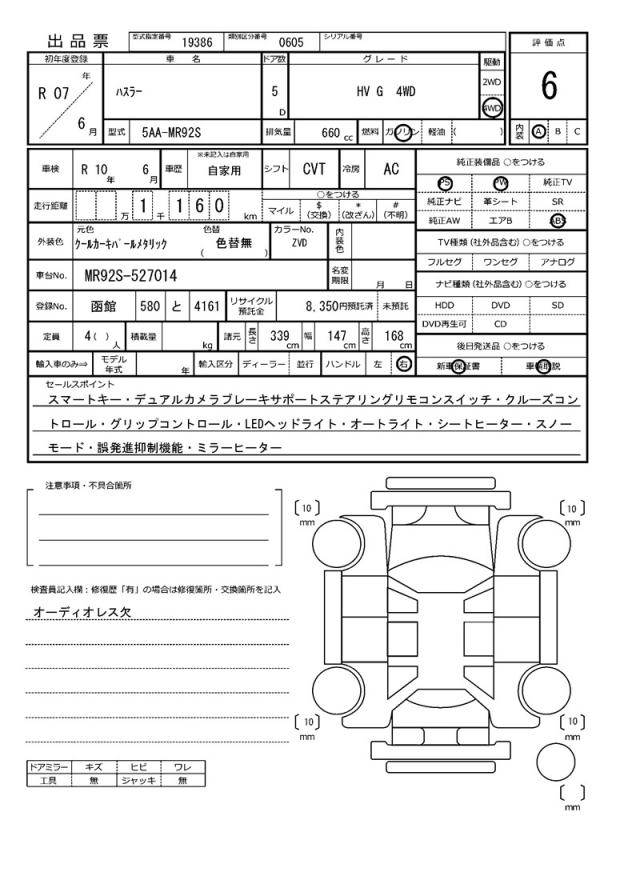 出品票 型式指定番号 19386 類別区分番号 0605 シリアル番号
評価点
6
内装 A B C
初年度登録 車名 ドア数 グレード 駆動
R 07 年 6 月 ハスラー 5 D HV G 4WD 2WD 4WD
型式 5AA-MR92S 排気量 660 cc 燃料 ガソリン 軽油 ( )
車検 R 10 年 6 月 車歴 ※未記入は自家用 自家用 シフト CVT 冷房 AC
走行距離 万 1 千 1 6 0 km ○をつける
マイル $ (交換) * (改ざん) # (不明)
外装色 元色 クールカーキパールメタリック 色替 ( 色替無 ) カラーNo. ZVD 内装色
車台No. MR92S-527014 名変期限 月 日
登録No. 函館 580 と 4161 リサイクル預託金 8,350円預託済 未預託
定員 4( ) 人 積載量 kg 諸元 長さ 339 cm 幅 147 cm 高さ 168 cm
輸入車のみ⇒ モデル年式 年 輸入区分 ディーラー 並行 ハンドル 左 右
純正装備品 ○をつける
PS PW 純正TV
純正ナビ 革シート SR
純正AW エアB ABS
TV種類 (社外品含む) ○をつける
フルセグ ワンセグ アナログ
ナビ種類 (社外品含む) ○をつける
HDD DVD SD
DVD再生可 CD
後日発送品 ○をつける
新車保証書 車輌取説
セールスポイント
スマートキー・デュアルカメラブレーキサポートステアリングリモコンスイッチ・クルーズコン
トロール・グリップコントロール・LEDヘッドライト・オートライト・シートヒーター・スノー
モード・誤発進抑制機能・ミラーヒーター
注意事項・不具合箇所
検査員記入欄：修復歴「有」の場合は修復箇所・交換箇所を記入
オーディオレス欠
ドアミラー キズ ヒビ ワレ
工具 無 ジャッキ 無
[ 10 ] mm [ 10 ] mm
[ 10 ] mm [ 10 ] mm
[ ] mm